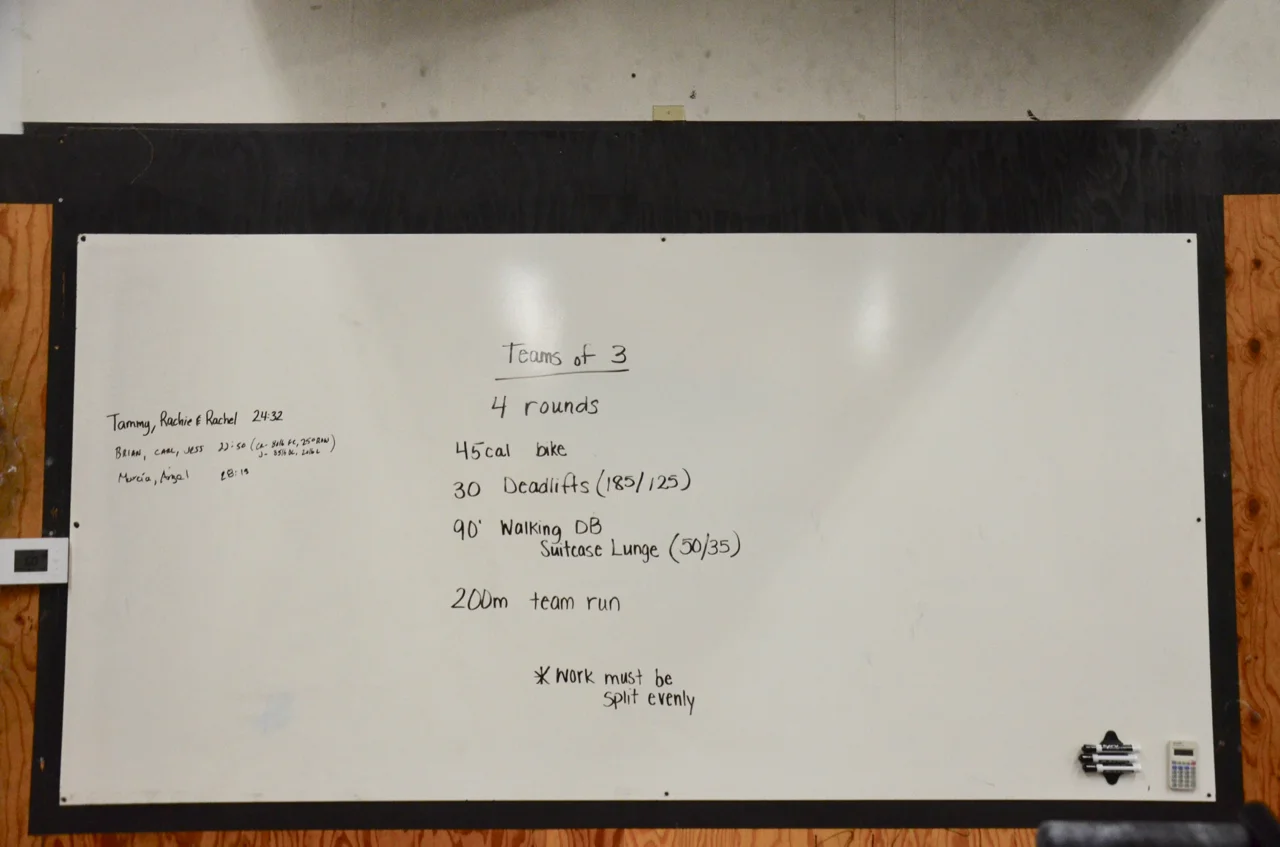 Teams of 3
4 rounds
45cal bike
30 Deadlifts (185/125)
90' Walking DB
Suitcase Lunge (50/35)
200m team run
* Work must be
split evenly
Tammy, Rachie & Rachel 24:32
BRIAN, CARL, JESS 22:50
Marcia, Angel 28:19